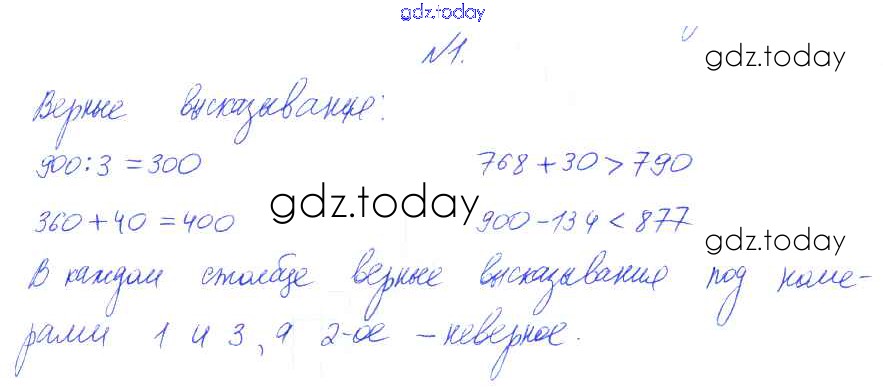 gdz.today
№1.
gdz.today
Верные высказывание:
900:3=300 768+30>790
360+40=400 gdz.today 900-134<877
gdz.today
В каждом столбце верные высказывания под номе-
рами 1 и 3, а 2-ое – неверное.